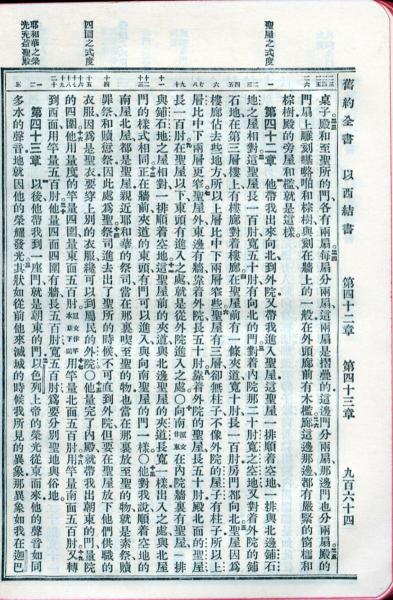 舊約全書 以西結書 第四十二章 第四十三章 九百六十四
聖屋之式度
四圍之式度
耶和華之榮
光充滿聖殿
桌子殿和至聖所的門各有兩扇每扇分兩扇這兩扇是摺疊的這邊門分兩扇那邊門也分兩扇殿的
門扇上雕刻和棕樹與刻在牆上的一般在外頭廊前有木檻廊這邊那邊都有嚴緊的窗櫺和
棕樹殿的旁屋和檻就是這樣
第四十二章 他帶我出來向北到外院又帶我進入聖屋這聖屋一排順着空地一排與北邊鋪石
地之屋相對這聖屋長一百肘寬五十肘有向北的門對着內院那二十肘寬之空地又對着外院的鋪
石地在第三層樓上有樓廊對着樓廊在聖屋前有一條夾道寬十肘長一百肘房門都向北聖屋因爲
樓廊佔去些地方所以上層比中下兩層窄些聖屋有三層卻無柱子不像外院的屋子有柱子所以上
層比中下兩層更窄聖屋東邊有牆靠着外院長五十肘靠着外院的聖屋長五十肘殿北面的聖屋
長一百肘在聖屋以下東頭有進入之處就是從外院進入之處〇向南在內院牆裏有聖屋一排
與鋪石地之屋相對一排順着空地這聖屋前的夾道與北邊聖屋的夾道長寬一樣出入之處與北屋
門的樣式相同正在牆前夾道的東頭有門可以進入與向南聖屋的門一樣〇他對我說順着空地的
南屋北屋都是聖屋親近耶和華的祭司當在那裏喫至聖的物也當在那裏放至聖的物就是素祭贖
罪祭和贖愆祭因此處爲聖祭司進去出了聖所的時候不可直到外院但要在聖屋放下他們供職的
衣服因爲是聖衣要穿上別的衣服纔可以到屬民的外院〇他量完了內殿就帶我出朝東的門量院
的四圍他用量度的竿量四圍量東面五百肘用竿量北面五百肘用竿量南面五百肘又轉
到西面用竿量五百肘他量四面四圍有牆長五百肘寬五百肘爲要分別聖地與俗地
第四十三章 以後他帶我到一座門就是朝東的門以色列上帝的榮光從東而來他的聲音如同
多水的聲音地就因他的榮耀發光其狀如從前他來滅城的時候我所見的異象那異象如我在迦巴